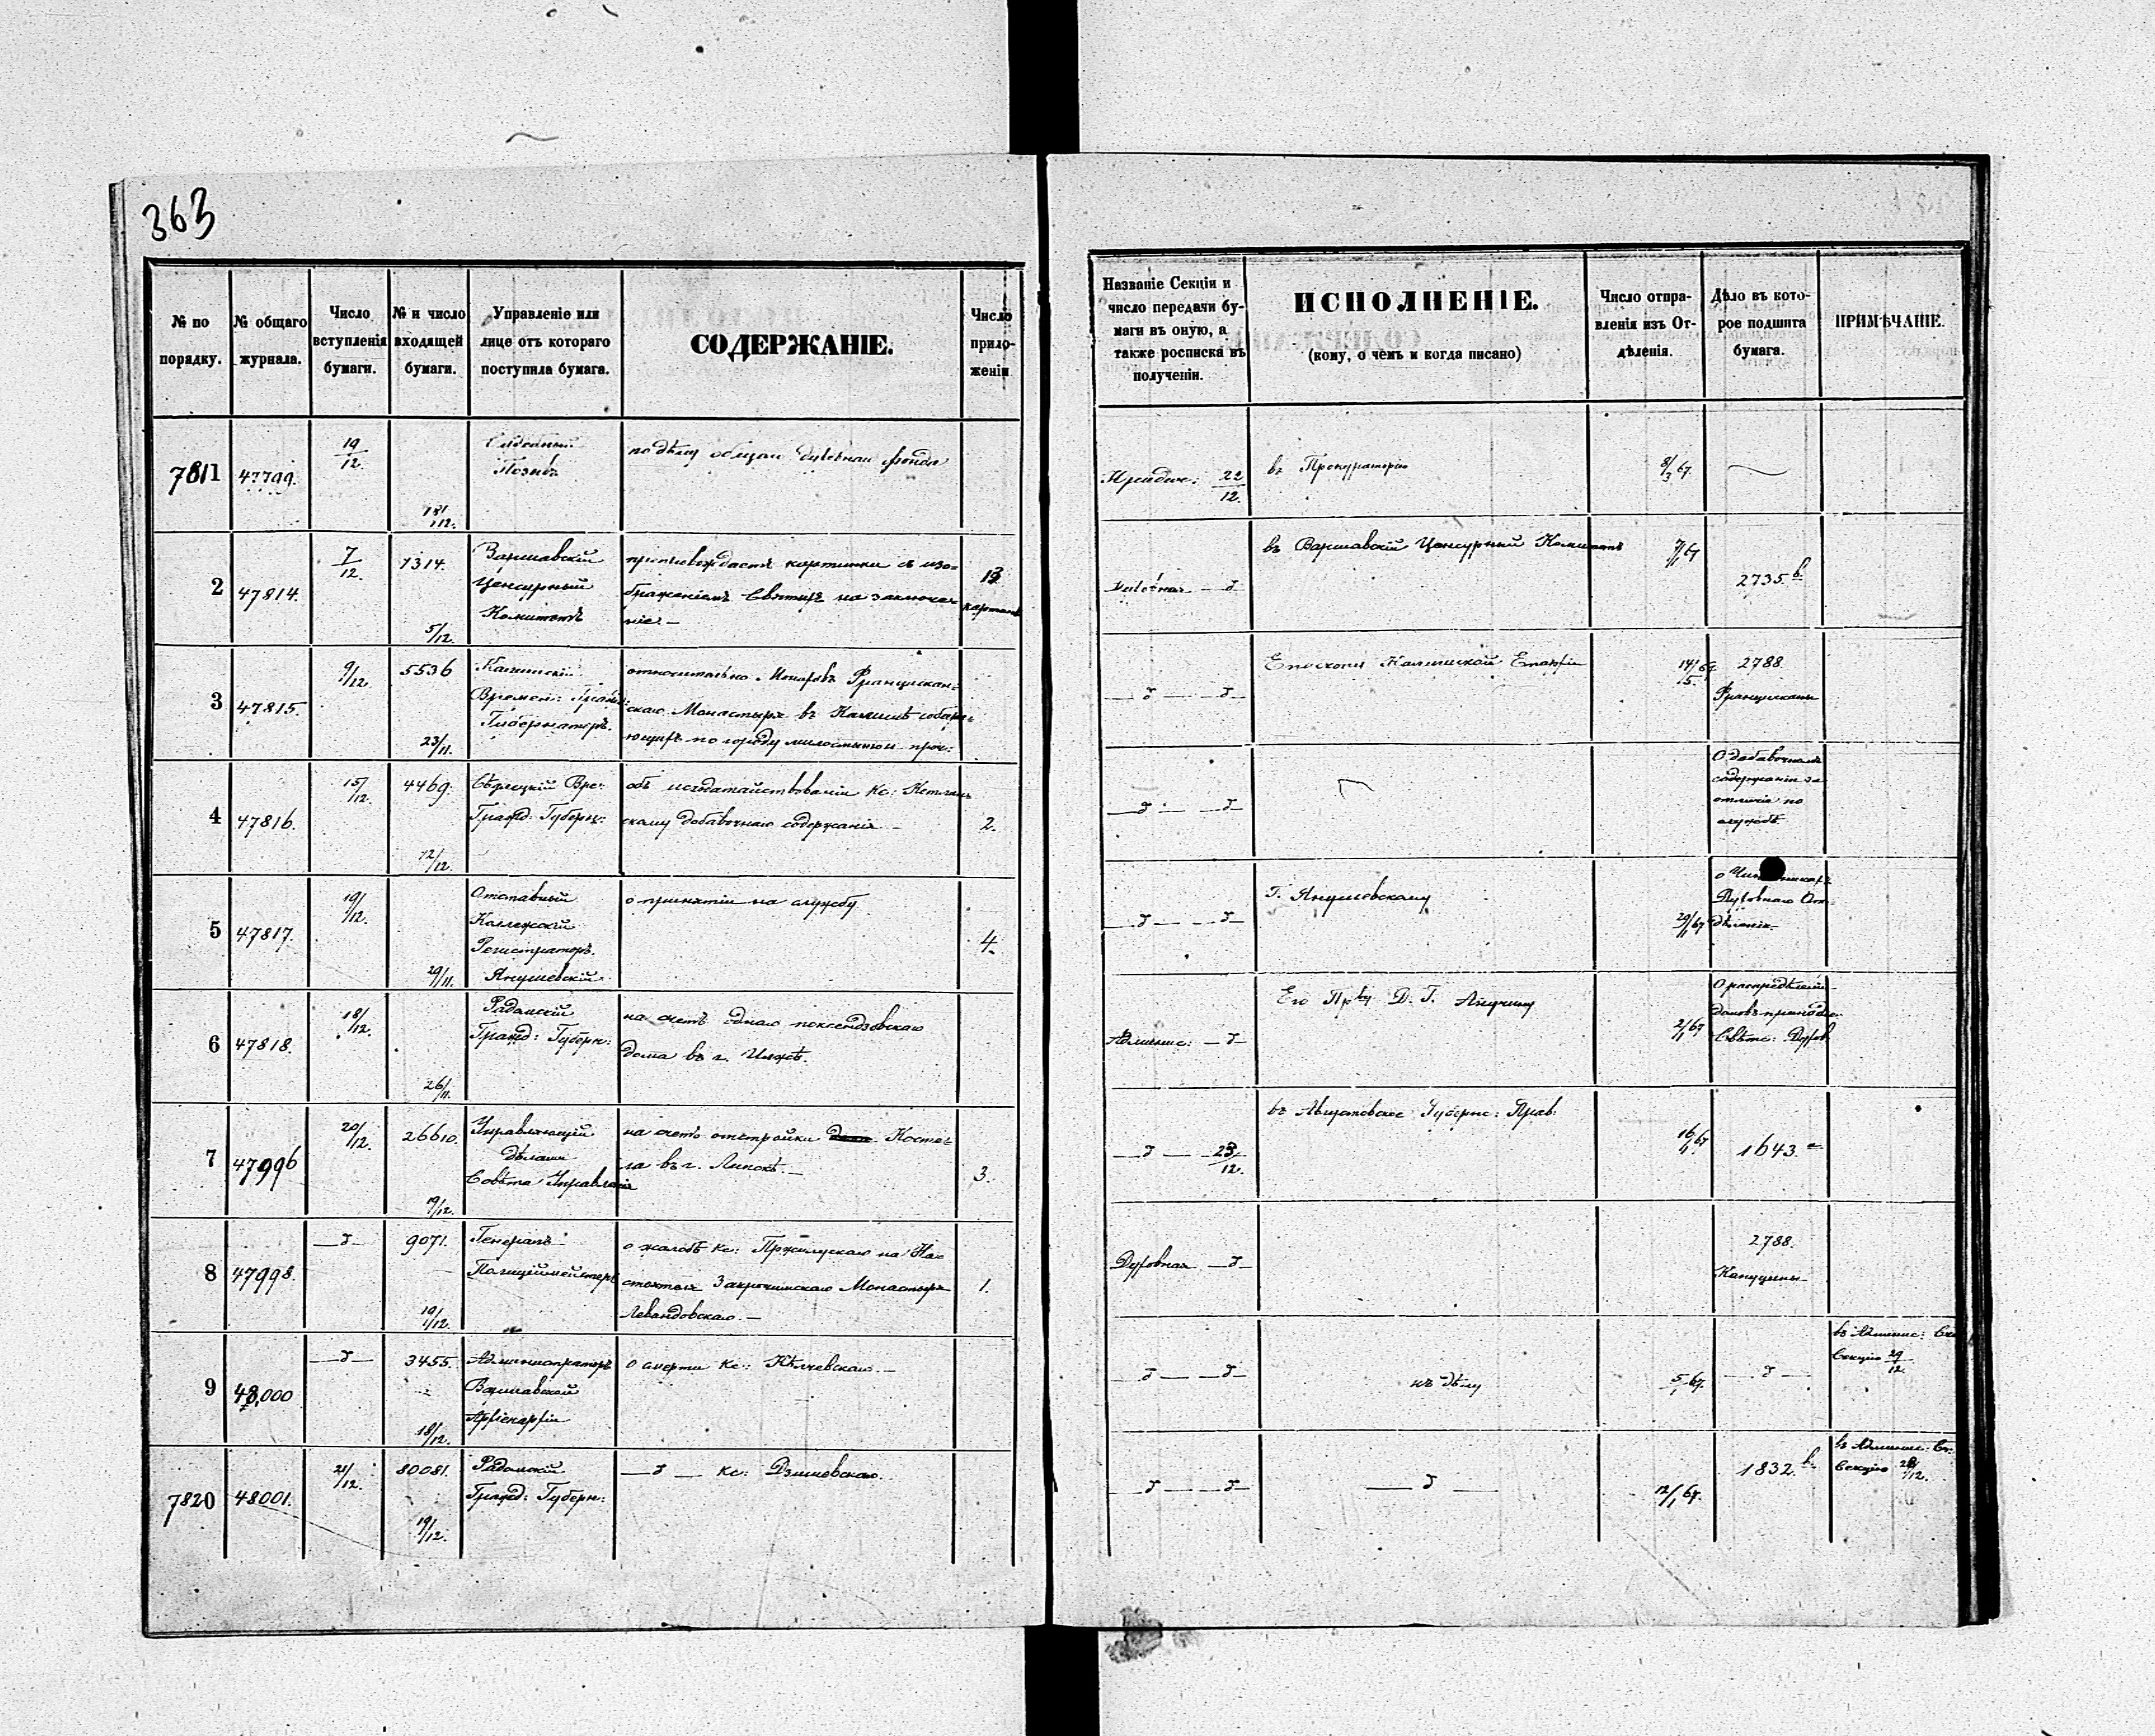 363
№ по порядку.
№ общаго журнала.
Число вступленія бумаги.
№ и число входящей бумаги.
Управленіе или лице отъ котораго поступила бумага.
СОДЕРЖАНІЕ.
Число приложеній
Названіе Секціи и число передачи бумаги въ оную, а также росписка въ полученіи.
ИСПОЛНЕНІЕ.
(кому, о чемъ и когда писано)
Число отправленія изъ Отдѣленія.
Дѣло въ которое подшита бумага.
ПРИМѢЧАНІЕ.
7811
47799.
19/12.
по дѣлу
22/12.
въ Прокураторію
8/3 67.
2
47814.
7/12.
1314.
5/12.
Варшавскій
Цензурный
Комитетъ
препровождаетъ картинки съ изо-
браженіемъ Святыхъ на заключе-
ніе –
13
Духовная — д
въ Варшавскій Цензурный Комитетъ
7/1 67
2735.
3
47815.
9/12.
5536
23/11.
Калишскій
Времен: Гражд:
Губернаторъ.
относительно Монаховъ Францискан-
скаго Монастыря въ Калишѣ собира-
ющихъ по городу милостыню и проч:
— д — — д —
Епископу Калишской Епархіи
14/5. 67
2788.
Францискане
4
47816.
15/12.
4469.
12/12.
Сѣдлецкій Вре:
Гражд: Губерн:
объ исходатайствованіи Кс:
скому добавочнаго содержанія –
2.
— д — — д —
О добавочномъ
содержаніи за
отличіе по
службѣ.
5
47817.
19/12.
29/11.
Отставный
Коллежскій
Регистраторъ
Янушевскій
о принятіи на службу
4.
— д — — д —
Г. Янушевскому
29/1 67
Духовнаго От-
дѣленія.
6
47818.
18/12.
26/11.
Радомскій
Гражд: Губерн:
на счетъ однаго поксендзовскаго
дома въ г. Илжѣ.
Админис: — д —
Его Пр-ву Д. Г. Анучину
2/1 67
О распредѣленіи
домовъ
7
47996
20/12.
26610.
19/12.
Управляющій
дѣлами
Совѣта Управленія
на счетъ отстройки Косте-
ла въ г. Липскѣ. –
3.
— д — 23/12.
въ Августовское Губернс: Прав:
16/1 67
1643.
8
47998.
— д —
9071.
19/12.
Генералъ-
Полицiймейстеръ
о жалобѣ Кс: Пржилускаго на На-
стоятеля Закрочимскаго Монастыря
Левандовскаго. –
1.
Духовная — д —
2788.
Капуцины
9
48,000
— д —
3455.
18/12.
Администраторъ
Варшавской
Архіепархіи
о смерти Кс: –
— д — — д —
къ дѣлу
5/1 67.
— д —
въ Админис:
Секцію 29/12
7820
48001.
21/12.
80081.
19/12.
Радомскій
Гражд: Губерн:
— д — Кс:
— д — — д —
— д —
12/1 67.
1832.
въ Админис:
Секцію 28/12.